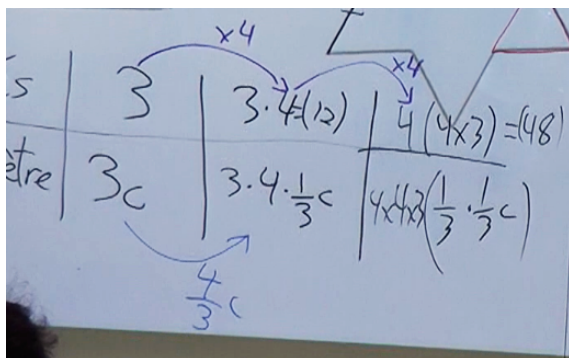 x4 x4
s 3 3·4=(12) 4(4x3)=(48)
ètre 3c 3·4·1/3c 4x4x3(1/3·1/3c)
4/3c